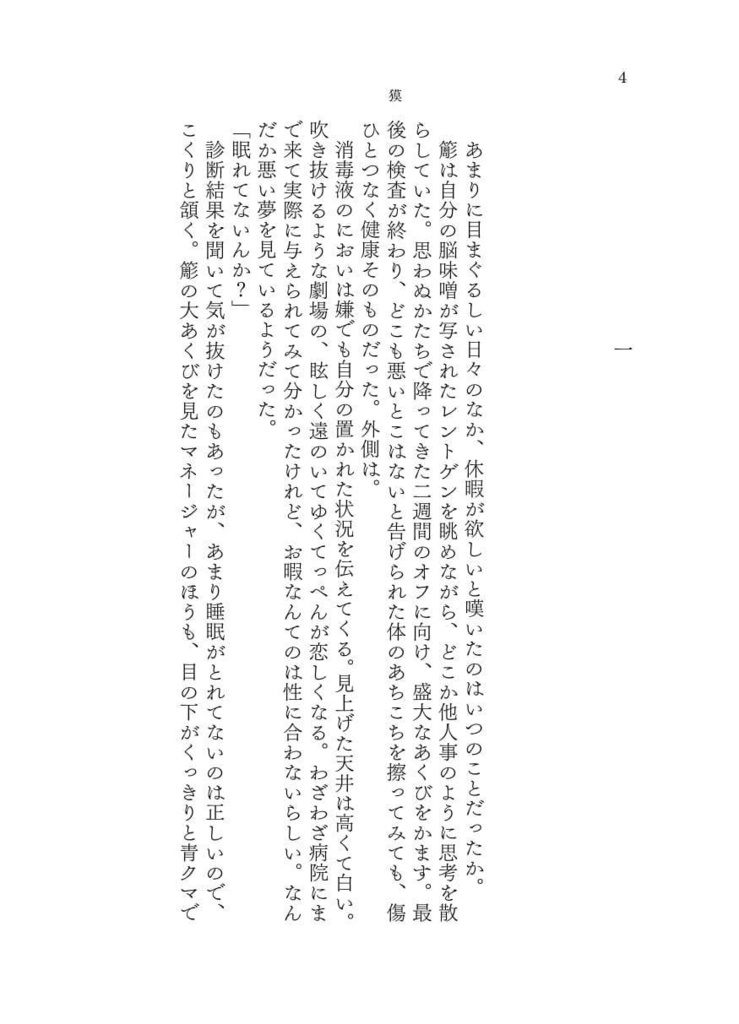 4
獏
一
あまりに目まぐるしい日々のなか、休暇が欲しいと嘆いたのはいつのことだったか。
簓は自分の脳味噌が写されたレントゲンを眺めながら、どこか他人事のように思考を散
らしていた。思わぬかたちで降ってきた二週間のオフに向け、盛大なあくびをかます。最
後の検査が終わり、どこも悪いとこはないと告げられた体のあちこちを擦ってみても、傷
ひとつなく健康そのものだった。外側は。
消毒液のにおいは嫌でも自分の置かれた状況を伝えてくる。見上げた天井は高くて白い。
吹き抜けるような劇場の、眩しく遠のいてゆくてっぺんが恋しくなる。わざわざ病院にま
で来て実際に与えられてみて分かったけれど、お暇なんてのは性に合わないらしい。なん
だか悪い夢を見ているようだった。
「眠れてないんか？」
診断結果を聞いて気が抜けたのもあったが、あまり睡眠がとれてないのは正しいので、
こくりと頷く。簓の大あくびを見たマネージャーのほうも、目の下がくっきりと青クマで